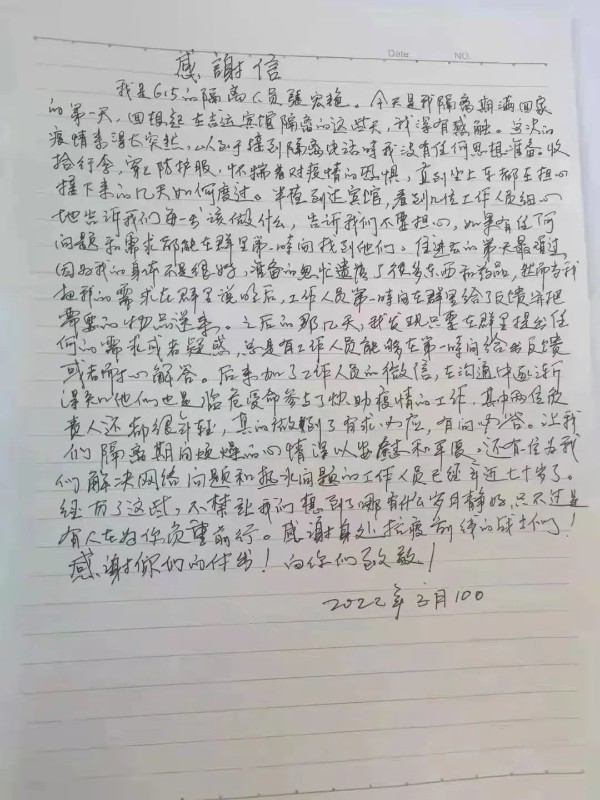 Date. NO.
感謝信
我是615的隔离人员张宏艳。今天是我隔离期满回家
的第一天，回想起在吉运宾馆隔离的这些天，我深有感触。这次的
疫情来得太突然，以至于接到隔离电话时我没有任何思想准备。收
拾行李，穿上防护服，怀揣着对疫情的恐惧，直到坐上车都在担心
接下来的几天如何度过。车直到达宾馆，看到几位工作人员细心
地告诉我们每一步该做什么，告诉我们不要担心，如果有任何
问题和需求都能在群里第一时间找到他们。住进去的第一天最难过，
因为我的身体不是很好，准备的急忙遗落了很多东西和药品，然而当我
把我的需求在群里说明后，工作人员第一时间在群里给了反馈并把
需要的物品送来。之后的那几天，我发现只要在群里提出任
何的需求或者疑惑，总是有工作人员能够在第一时间给出反馈
或者耐心解答。后来加了工作人员的微信，在沟通中逐渐
得知他们也是临危受命参与了协助疫情的工作，其中两位负
责人还都很年轻，真的做到了有求必应，有问必答。让我
们隔离期间烦燥的心情得以安慰和平复。还有一位为我
们解决网络问题和热水问题的工作人员已经年近七十岁了。
经历了这些，不禁让我们想到了哪有什么岁月静好，只不过是
有人在为你负重前行。感谢身处抗疫前线的战士们！
感谢你们的付出！向你们致敬！
2022年3月10日